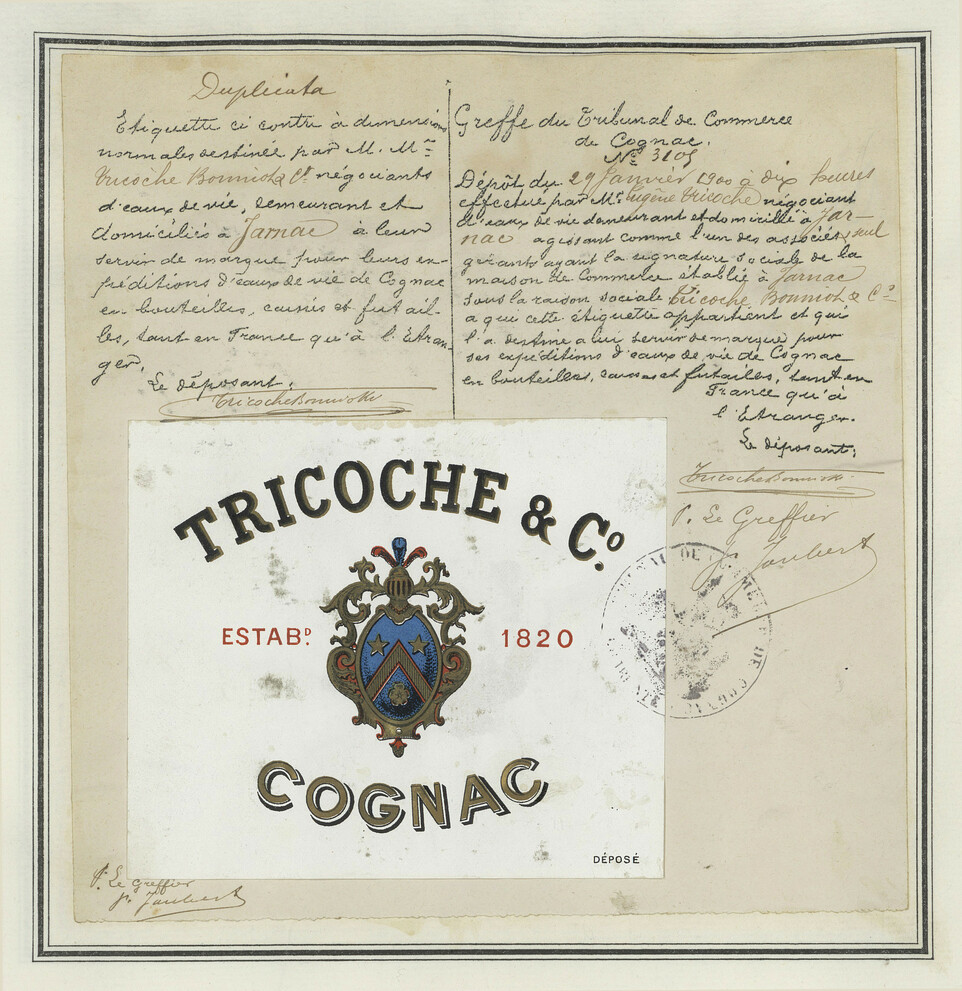 Duplicata
Etiquette ci contre à dimensions
normales destinée par M. Mrs
Tricoche Bonniot & Ce négociants
d'eaux de vie, demeurant et
domiciliés à Jarnac à leur
servir de marque pour leurs ex-
péditions d'eaux de vie de Cognac
en bouteilles, caisses et futail-
les, tant en France qu'à l'Etran-
ger.
Le déposant,
Tricoche Bonniot & Ce
Greffe du Tribunal de Commerce
de Cognac.
No 3105
Dépôt du 29 Janvier 1900 à dix heures
effectué par Mr Eugène Tricoche négociant
d'eaux de vie demeurant et domicilié à Jar-
nac agissant comme l'un des associés, seul
gérants ayant la signature sociale de la
maison de Commerce établie à Jarnac
sous la raison sociale Tricoche, Bonniot & Ce
a qui cette étiquette appartient et qui
l'a destiné a lui servir de marque pour
ses expéditions d'eaux de vie de Cognac
en bouteilles, caisses et futailles, tant en
France qu'à
l'Etranger.
Le déposant,
Tricoche Bonniot & Ce
P. Le Greffier
Joubert
TRICOCHE & Co.
ESTABD. 1820
COGNAC
DÉPOSÉ
P. Le Greffier
Joubert